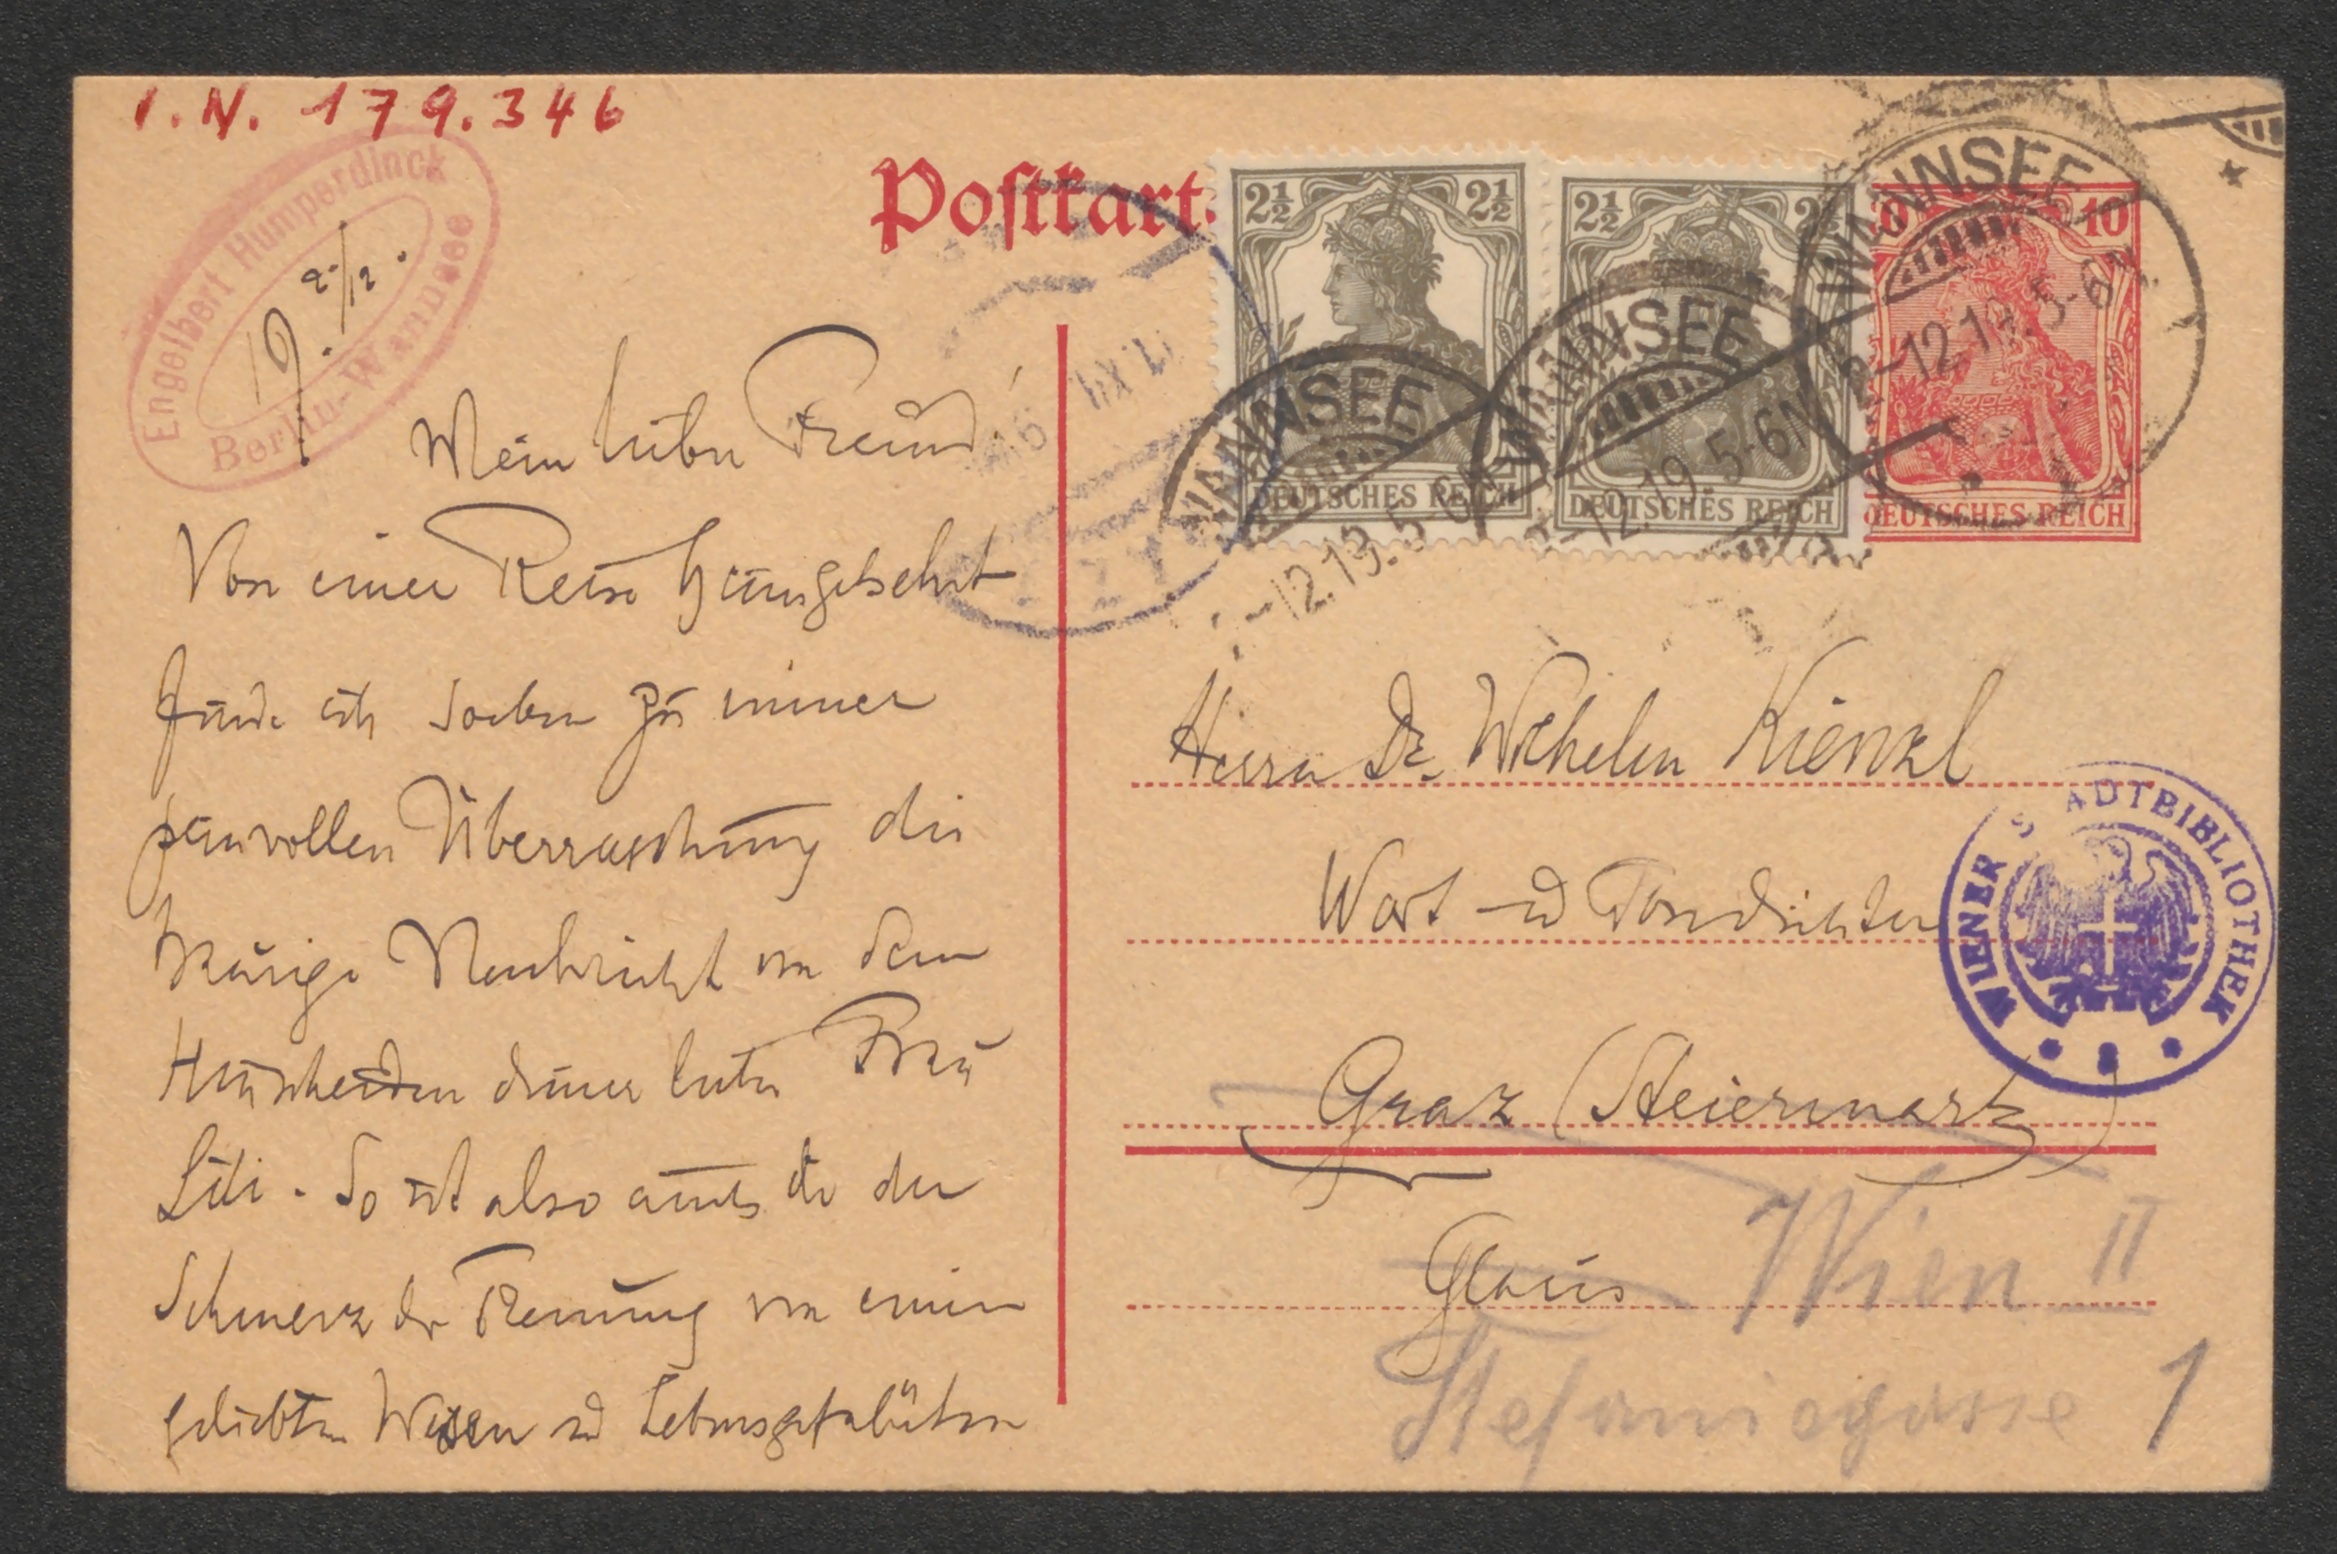 I.N. 179.346
Engelbert Humperdinck
Berlin-Wannsee
19. 2./12.
Postkart
2½ 2½
DEUTSCHES REICH
2½
DEUTSCHES REICH
10
DEUTSCHES REICH
WANNSEE
-12.19. 5-6N
WANNSEE
-12.19. 5-6N
WANNSEE
2-12.19. 5-6N
Mein lieber Freund!
Von einer Reise heimgekehrt
finde ich soeben zu meiner
peinvollen Überraschung die
traurige Nachricht von dem
Hinscheiden deiner lieben Frau
Lili. So ist also auch dir der
Schmerz der Trennung von einem
geliebten Wesen und Lebensgefährten
Herrn Dr. Wilhelm Kienzl
Wort- und Tondichter
Graz (Steiermark)
Wien II
Stefaniegasse 1
WIENER STADTBIBLIOTHEK